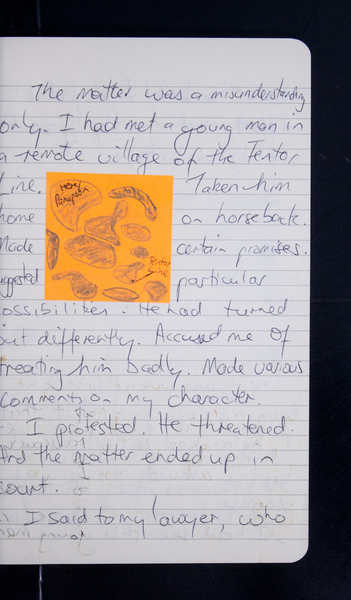 The matter was a misunderstanding
only. I had met a young man in
a remote village of the Textor
Line. Taken him
home on horseback.
Made certain promises.
uggested particular
ossibilities. He had turned
out differently. Accused me of
treating him badly. Made various
comments on my character.
I protested. He threatened.
And the matter ended up in
court.
I said to my lawyer, who
Here
Textor
Line